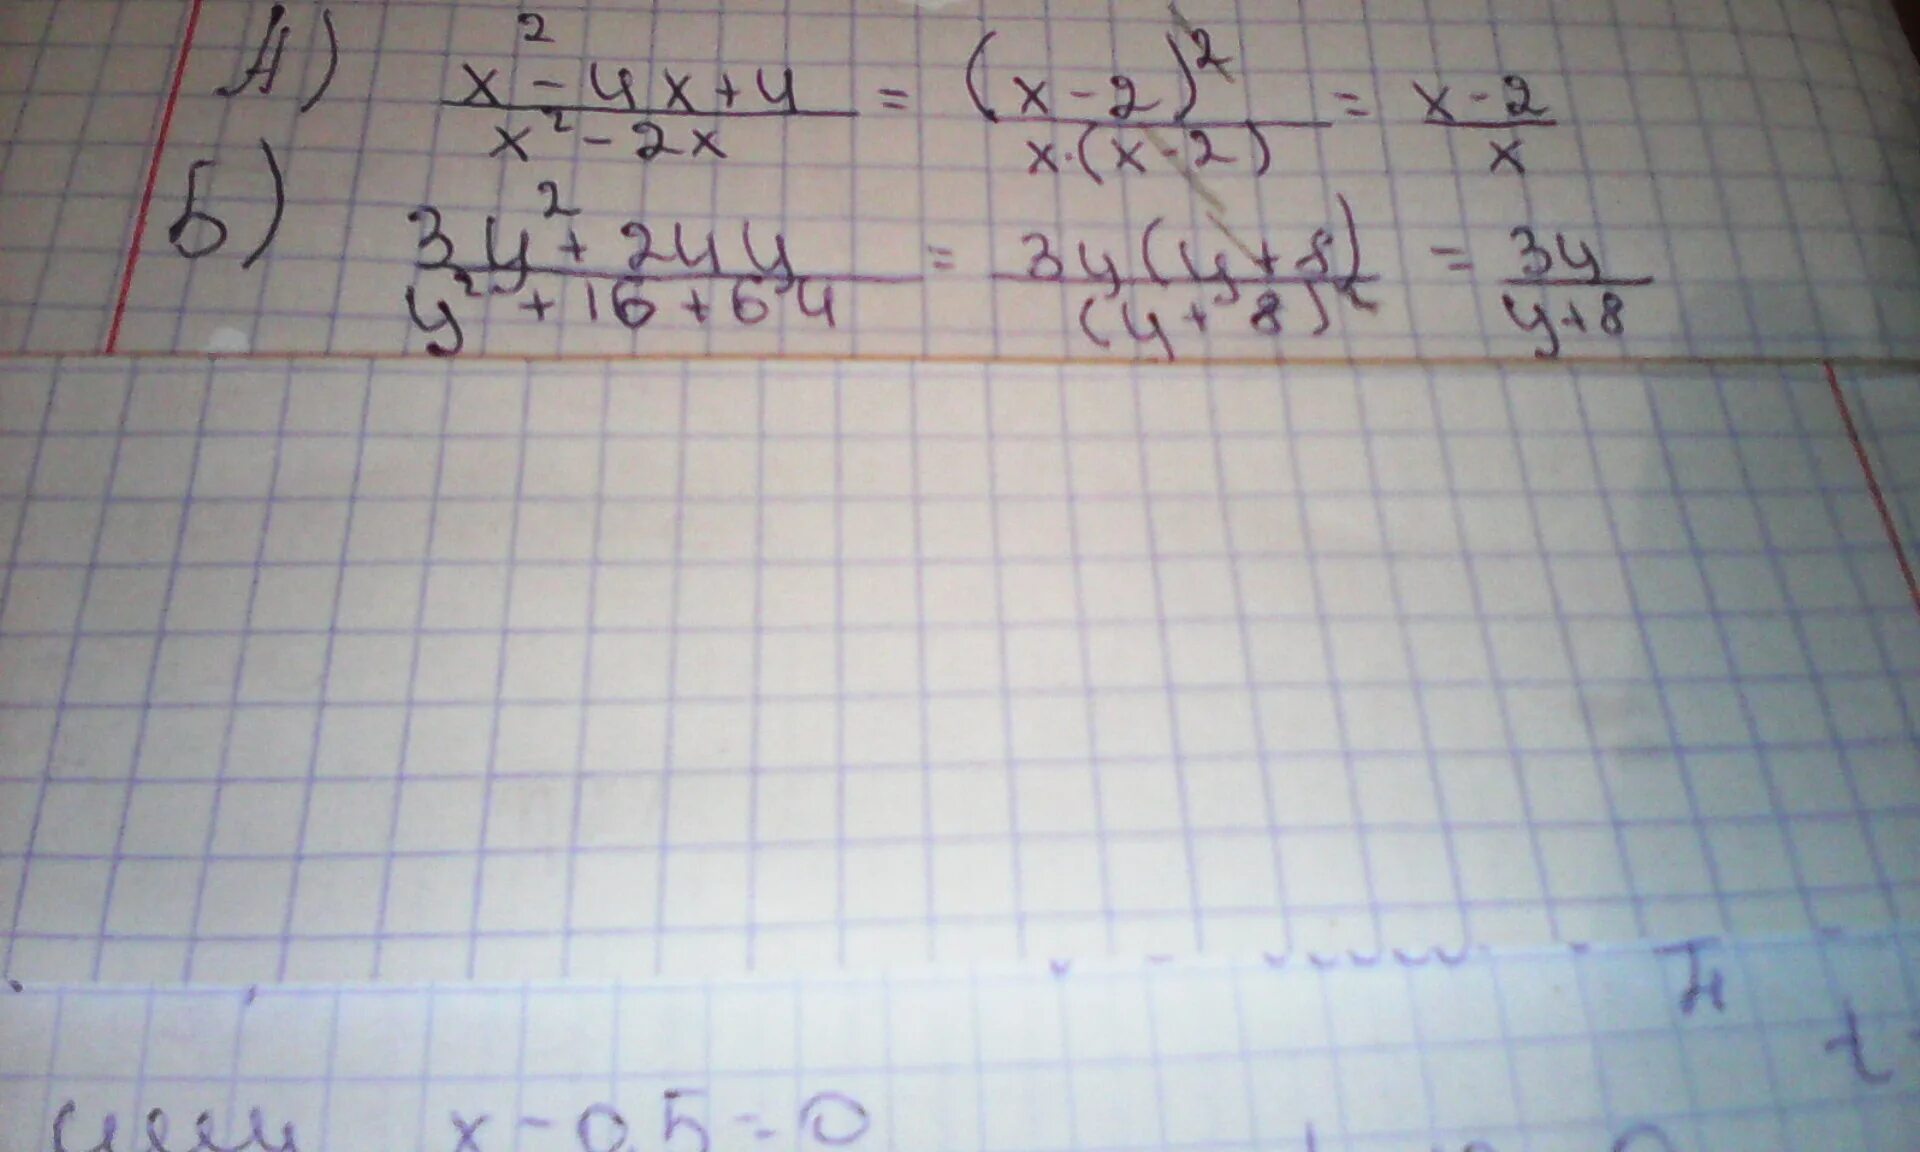 А) x² - 4x + 4 / x² - 2x = (x - 2)² / x·(x - 2) = x - 2 / x
Б) 3y² + 24y / y² + 16 + 64 = 3y(y + 8) / (y + 8)² = 3y / y + 8
x - 0,5 = 0